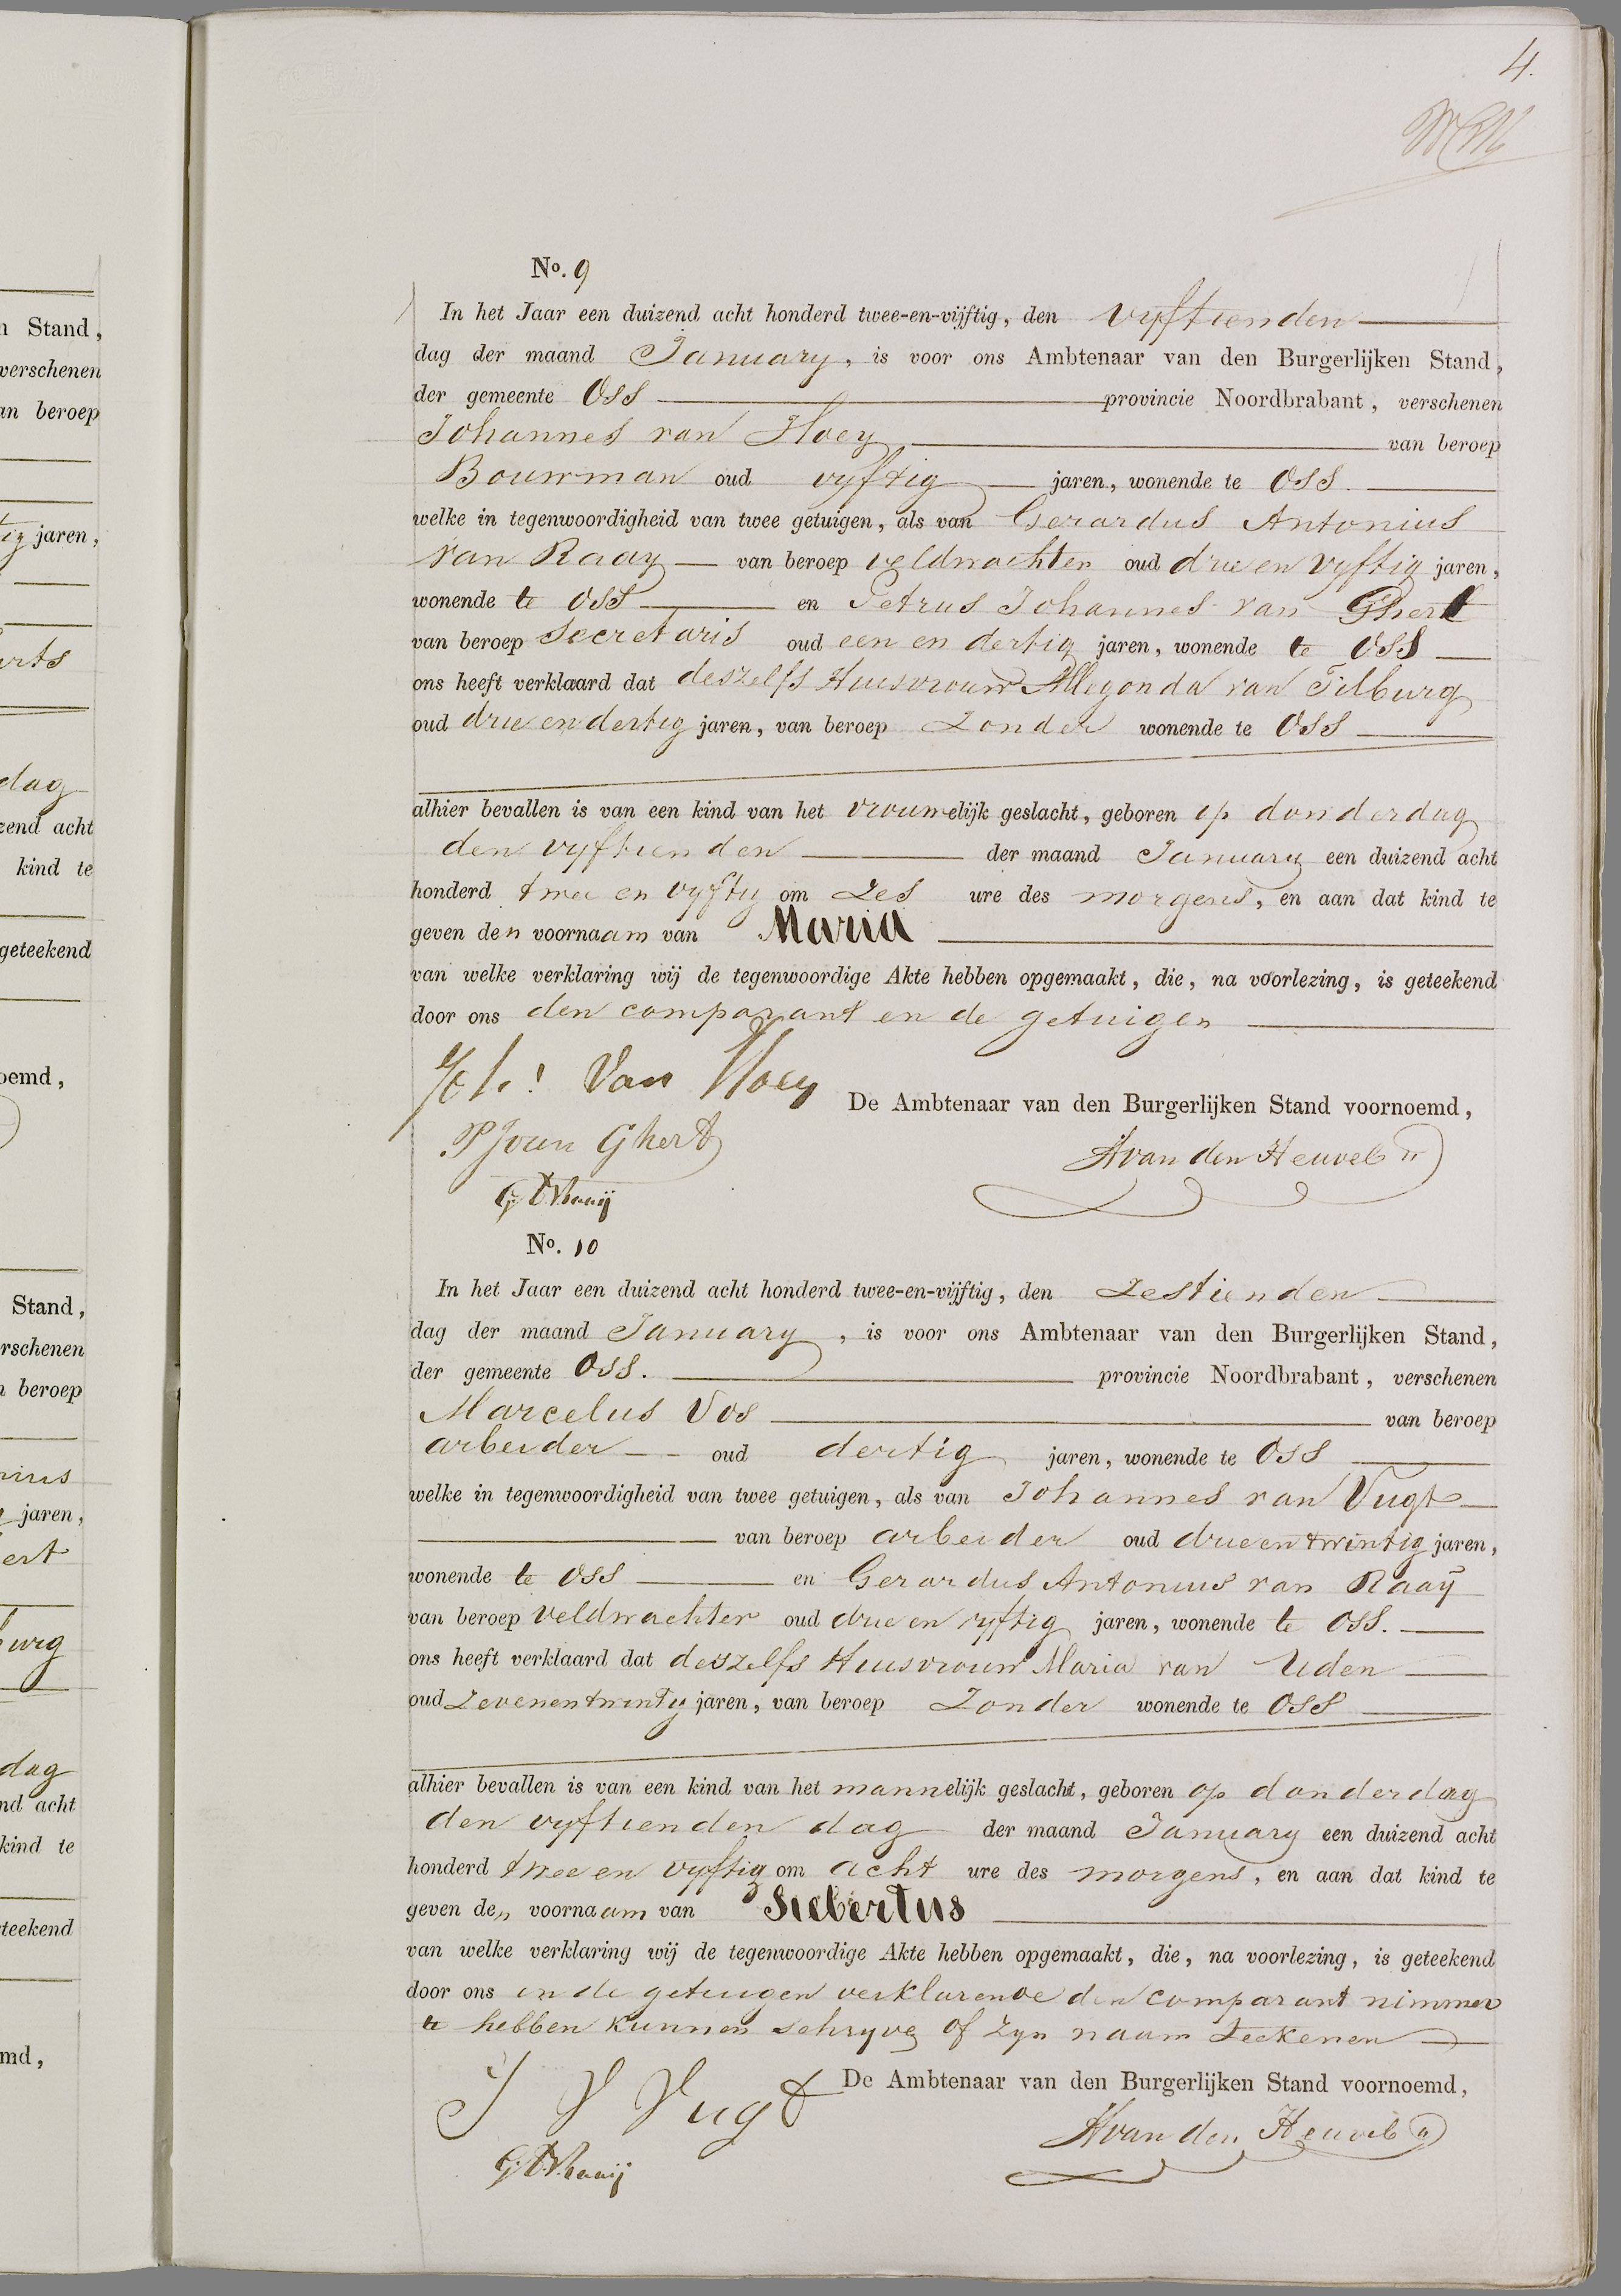 n Stand,
verschenen
an beroep
tig jaren,
erts
dag
zend acht
kind te
geteekend
oemd,
Stand,
erschenen
n beroep
nius
jaren,
ert
burg
dag
nd acht
kind te
teekend
md,
4.
No. 9
In het Jaar een duizend acht honderd twee-en-vijftig, den vyftienden
dag der maand January, is voor ons Ambtenaar van den Burgerlijken Stand,
der gemeente Oss provincie Noordbrabant, verschenen
Johannes van Hoey van beroep
Bouwman oud vyftig jaren, wonende te Oss.
welke in tegenwoordigheid van twee getuigen, als van Gerardus Antonius
van Raay van beroep veldwachter oud drie en vyftig jaren,
wonende te Oss en Petrus Johannes van Ghert
van beroep Secretaris oud een en dertig jaren, wonende te Oss
ons heeft verklaard dat deszelfs Huisvrouw Allegonda van Tilburg
oud drie en dertig jaren, van beroep Zonder wonende te Oss
alhier bevallen is van een kind van het vrouwelijk geslacht, geboren op donderdag
den vyftienden der maand January een duizend acht
honderd twee en vyftig om Zes ure des morgens, en aan dat kind te
geven den voornaam van Maria
van welke verklaring wij de tegenwoordige Akte hebben opgemaakt, die, na voorlezing, is geteekend
door ons den comparant en de getuigen
Joh: Van Hoey
De Ambtenaar van den Burgerlijken Stand voornoemd,
PJvan Ghert
Hvan den Heuvel
GAVRaaij
No. 10
In het Jaar een duizend acht honderd twee-en-vijftig, den Zestienden
dag der maand January, is voor ons Ambtenaar van den Burgerlijken Stand,
der gemeente Oss. provincie Noordbrabant, verschenen
Marcelus Vos van beroep
arbeider oud dertig jaren, wonende te Oss
welke in tegenwoordigheid van twee getuigen, als van Johannes van Vugt
van beroep arbeider oud drieentwintig jaren,
wonende te Oss en Gerardus Antonius van Raaÿ
van beroep veldwachter oud drie en vyftig jaren, wonende te Oss.
ons heeft verklaard dat deszelfs Huisvrouw Maria van Uden
oud Zevenentwintig jaren, van beroep Zonder wonende te Oss
alhier bevallen is van een kind van het mannelijk geslacht, geboren op donderdag
den vyftienden dag der maand January een duizend acht
honderd twee en vyftig om acht ure des morgens, en aan dat kind te
geven den voornaam van Siebertus
van welke verklaring wij de tegenwoordige Akte hebben opgemaakt, die, na voorlezing, is geteekend
door ons en de getuigen verklarende den comparant nimmer
te hebben kunnen schryve of zyn naam teekenen
De Ambtenaar van den Burgerlijken Stand voornoemd,
J V Vugt
Hvan den Heuvel
GAVRaaij